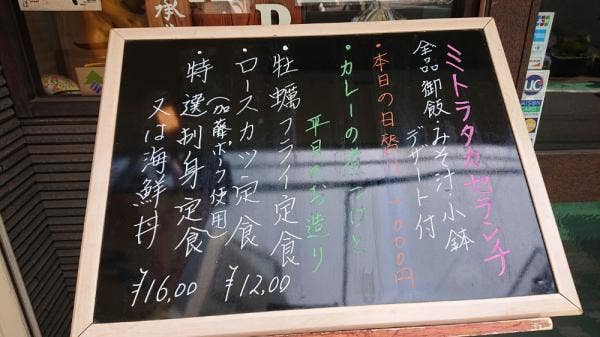 ミトラタカセランチ
全品御飯・みそ汁・小鉢
デザート付
・本日の日替り 1000円
・カレーの煮つけと
平目のお造り
・牡蠣フライ定食
・ロースカツ定食 ¥12,00
(加藤ポーク使用)
・特選刺身定食
又は海鮮丼 ¥16,00